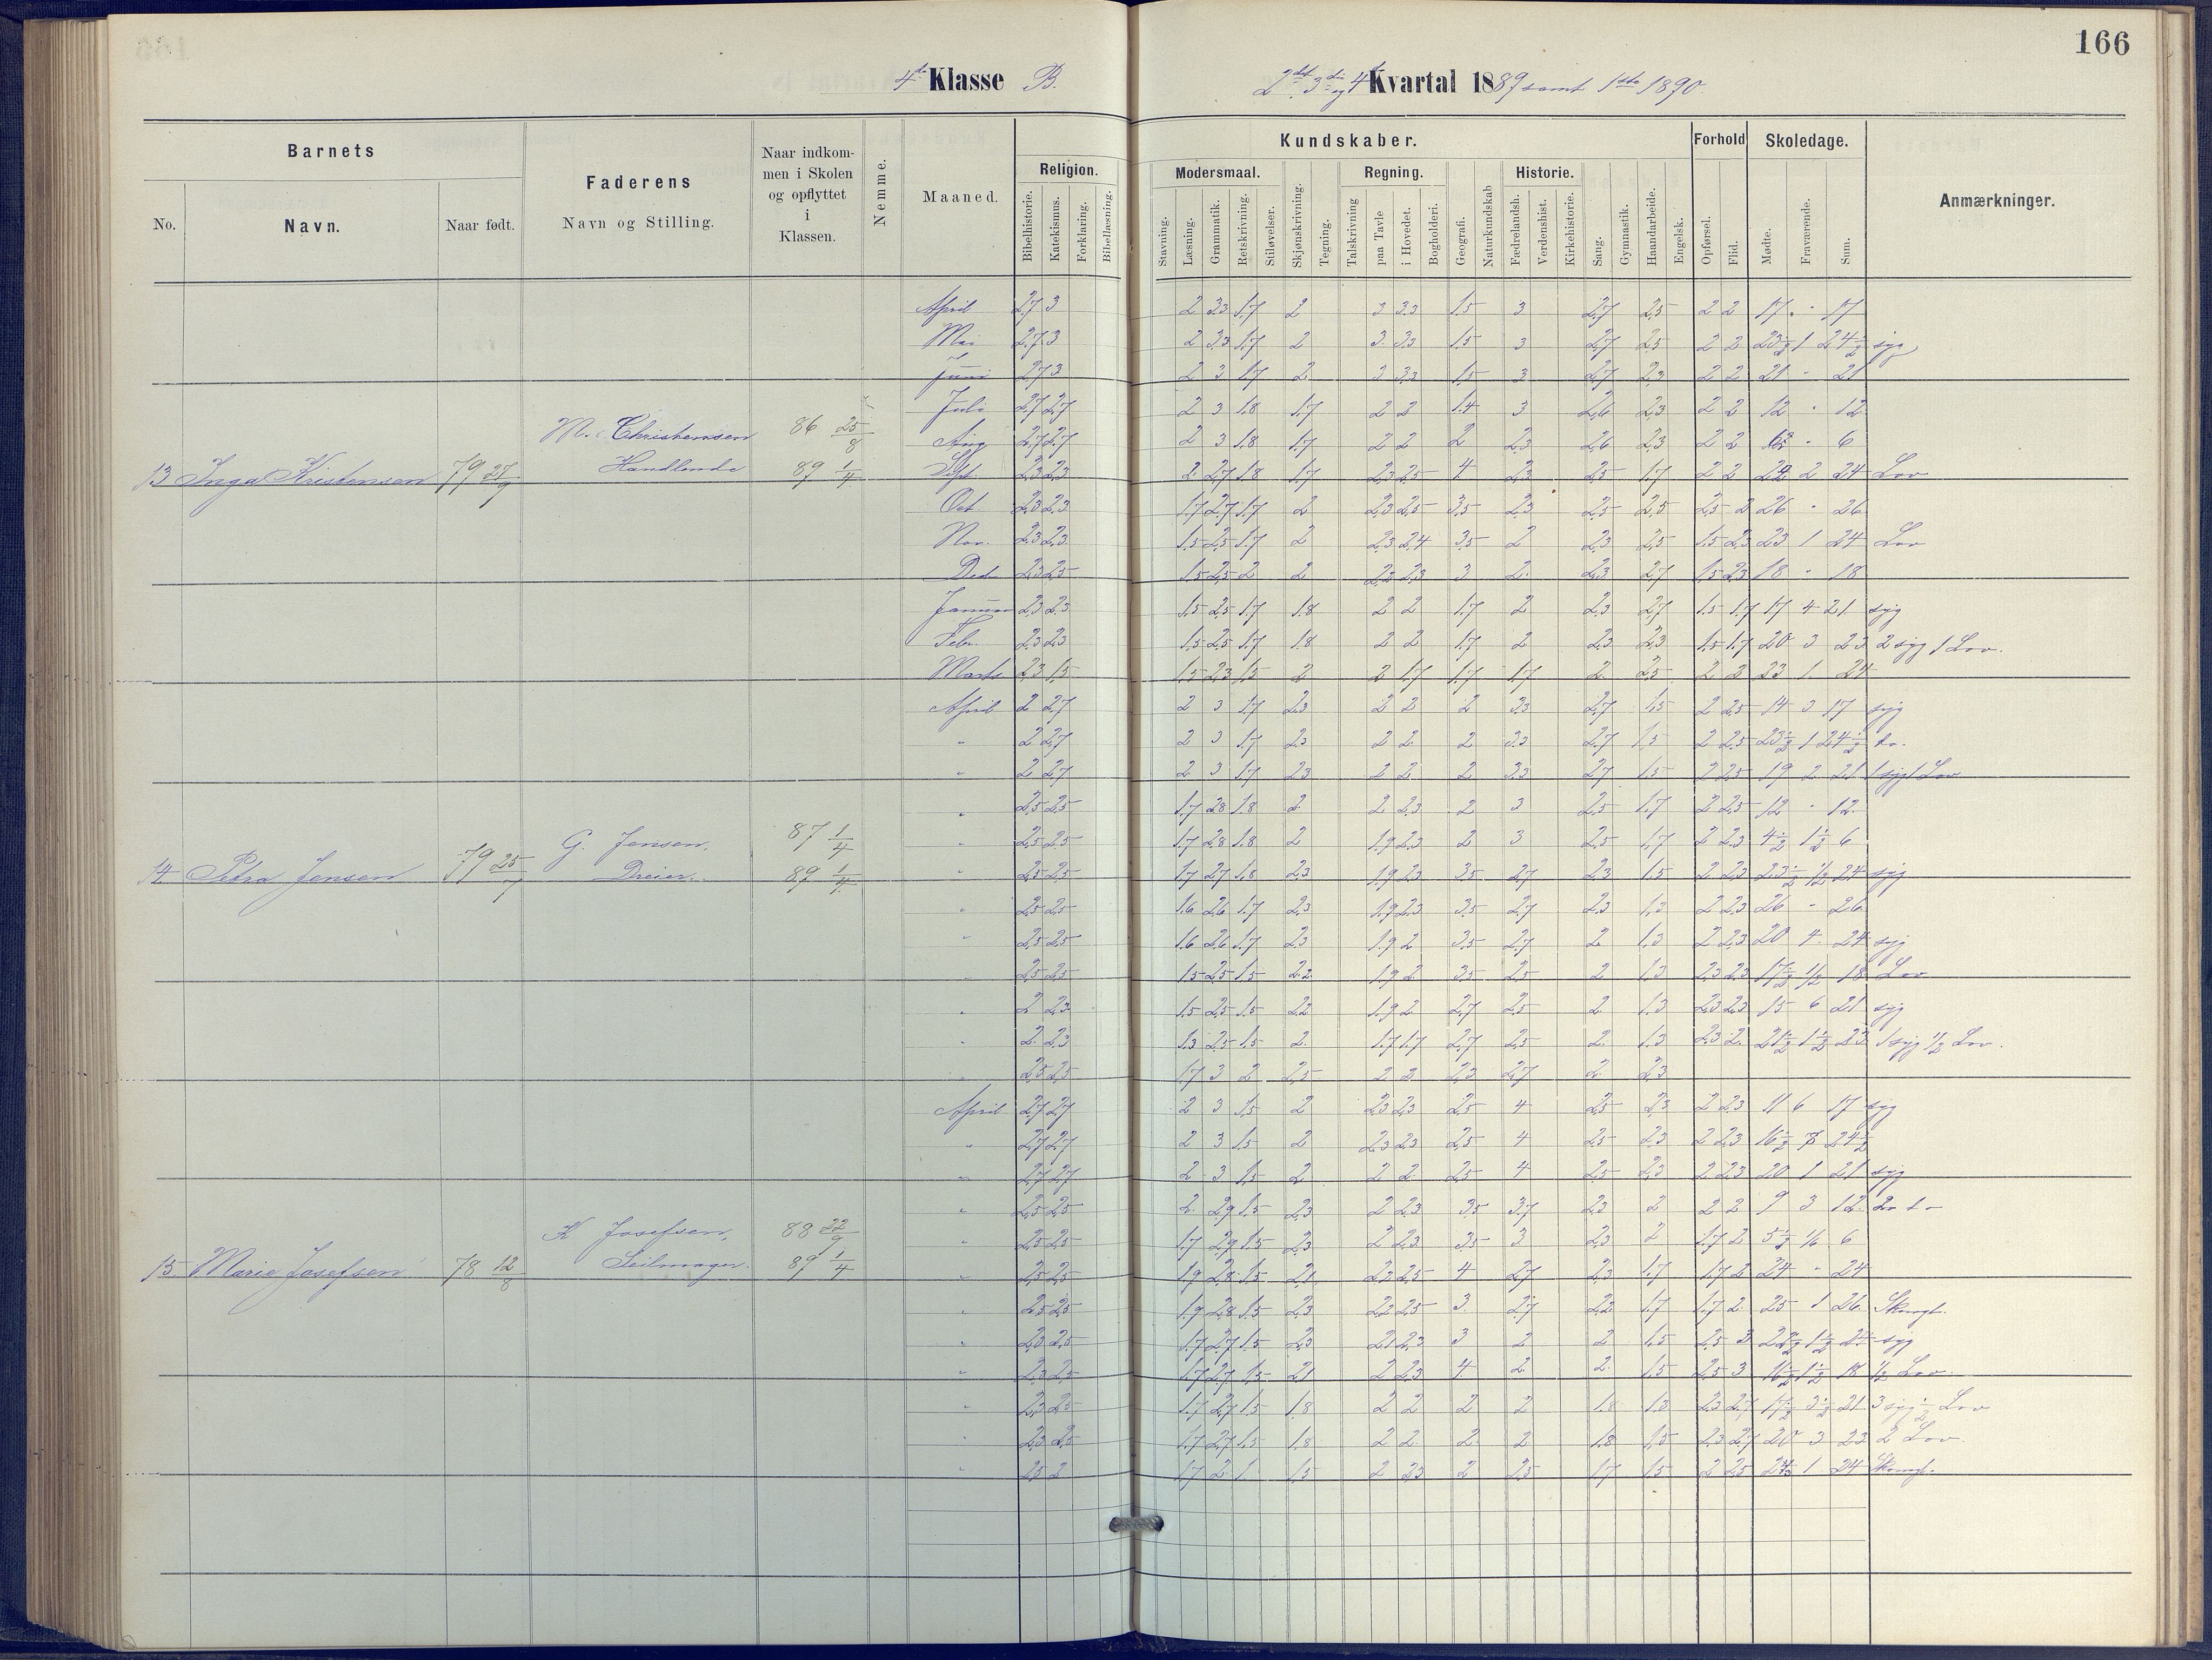 166
4de Klasse B.
2det 3die og 4de Kvartal 1889 samt 1ste 1890.
Barnets
No.
Navn.
Naar født.
Faderens
Navn og Stilling.
Naar indkom-
men i Skolen
og opflyttet
i
Klassen.
Nemme.
Maaned.
Kundskaber.
Religion.
Bibelhistorie.
Katekismus.
Forklaring.
Bibellæsning.
Modersmaal.
Stavning.
Læsning.
Grammatik.
Retskrivning.
Stiløvelser.
Skjønskrivning.
Tegning.
Regning.
Talskrivning
paa Tavle
i Hovedet.
Bogholderi.
Geografi.
Naturkundskab
Historie.
Fædrelandsh.
Verdenshist.
Kirkehistorie.
Sang.
Gymnastik.
Haandarbeide.
Engelsk.
Forhold
Opførsel.
Flid.
Skoledage.
Mødte.
Fraværende.
Sum.
Anmærkninger.
13 Inga Kristensen 79 27/9 M. Christensen Handlende 86 25/8 89 1/4
April 2,7 3 2 3,3 1,7 2 3 3,3 1,5 3 2,7 2,5 2 2 17 - 17
Mai 2,7 3 2 3,3 1,7 2 3 3,3 1,5 3 2,7 2,5 2 2 23½ 1 24½ syg
Juni 2,7 3 2 3 1,7 2 3 3,3 1,5 3 2,7 2,3 2 2 21 - 21
Juli 2,7 2,7 2 3 1,8 1,7 2 2 1,4 3 2,6 2,3 2 2 12 - 12
Aug 2,7 2,7 2 3 1,8 1,7 2 2 2 2,3 2,6 2,3 2 2 6 - 6
Sept. 2,3 2,3 2 2,7 1,8 1,7 2,3 2,5 4 2,3 2,5 1,7 2 2 22 2 24 Lov
Oct. 2,3 2,3 1,7 2,7 1,7 2 2,3 2,5 3,5 2,3 2,5 2,5 2,5 2 26 - 26
Nov. 2,3 2,3 1,5 2,5 1,7 2 2,3 2,4 3,5 2 2,3 2,5 1,5 2,3 23 1 24 Lov
Dec. 2,3 2,5 1,5 2,5 2 2 2,2 2,3 3 2 2,3 2,7 1,5 2,3 18 - 18
Januar 2,3 2,3 1,5 2,5 1,7 1,8 2 2 1,7 2 2,3 2,7 1,5 1,7 17 4 21 syg
Febr. 2,3 2,3 1,5 2,5 1,7 1,8 2 2 1,7 2 2,3 2,3 1,5 1,7 20 3 23 2 syg 1 Lov.
Marts 2,3 1,5 1,5 2,3 1,5 2 2 1,7 1,7 1,7 2 2,5 2 2 23 1 24
14 Petra Jensen 79 25/7 G. Jensen. Dreier. 87 1/4 89 1/4
April 2 2,7 2 3 1,7 2,3 2 2 2 3,3 2,7 1,5 2 2,5 14 3 17 syg
" 2 2,7 2 3 1,7 2,3 2 2 2 3,3 2,7 1,5 2 2,5 23½ 1 24½
" 2 2,7 2 3 1,7 2,3 2 2 2 3,3 2,7 1,5 2 2,5 19 2 21 1 syg 1 Lov
" 2,5 2,5 1,7 2,8 1,8 2 2 2,3 2 3 2,5 1,7 2 2,5 12 - 12
" 2,5 2,5 1,7 2,8 1,8 2 1,9 2,3 2 3 2,5 1,7 2 2,3 4½ 1½ 6
" 2,5 2,5 1,7 2,7 1,8 2,3 1,9 2,3 3,5 2,7 2,3 1,5 2 2,3 23½ ½ 24 syg
" 2,5 2,5 1,6 2,6 1,7 2,3 1,9 2,3 3,5 2,7 2,3 1,3 2 2,3 26 - 26
" 2,5 2,5 1,6 2,6 1,7 2,3 1,9 2 3,5 2,7 2 1,3 2 2,3 20 4 24 syg
" 2,5 2,5 1,5 2,5 1,5 2,2 1,9 2 3,5 2,5 2 1,3 2,3 2,3 17½ ½ 18 Lov
" 2 2,3 1,5 2,5 1,5 2,2 1,9 2 2,7 2,5 2 1,3 2,3 2,3 15 6 21 syg
" 2 2,3 1,3 2,5 1,5 2 1,7 1,7 2,7 2,5 2 1,3 2,3 2 21½ 1½ 23 1 syg ½ Lov.
2,5 2,5 1,7 3 2 2,5 2 2 2,3 2,7 2 2,3
15 Marie Josefsen 78 12/8 K Josefsen, Seilmager. 88 22/9 89 1/4
April 2,7 2,7 2 3 1,5 2 2,3 2,3 2,5 4 2,5 2,3 2 2,3 11 6 17 syg
" 2,7 2,7 2 3 1,5 2 2,3 2,3 2,5 4 2,5 2,3 2 2,3 16½ 8 24½
" 2,7 2,7 2 3 1,5 2 2 2 2,5 4 2,5 2,3 2 2,3 20 1 21 syg
" 2,5 2,5 2 2,9 1,5 2,3 2 2,3 3,5 3,7 2,3 2 2 2 9 3 12
" 2,5 2,5 1,7 2,9 1,5 2,3 2 2,3 3,5 3 2,3 2 1,7 2 5½ ½ 6
" 2,5 2,5 1,9 2,8 1,5 2,1 2,2 2,5 4 2,7 2,3 1,7 1,7 2 24 - 24
" 2,5 2,5 1,9 2,8 1,5 2,3 2,2 2,5 3 2,7 2,2 1,7 1,7 2 25 1 26
" 2,3 2,5 1,7 2,7 1,5 2,3 2,1 2,3 3 2 2 1,5 2,5 3 22½ 1½ 24 syg
" 2,3 2,5 1,7 2,7 1,5 2,1 2 2,3 4 2 2 1,5 2,5 3 16½ 1½ 18 ½ Lov.
" 2,3 2,5 1,7 2,7 1,5 1,8 2 2 2 2 1,8 1,3 2,3 2,7 17½ 3½ 21 3 syg ½ Lov
" 2,3 2,5 1,7 2,7 1,5 1,8 2 2 2 2 1,8 1,5 2,3 2,7 20 3 23 2 Lov
" 2,5 2 1,7 2 1 1,5 2 2,3 2 2,5 1,7 1,5 2 2,5 23 1 24